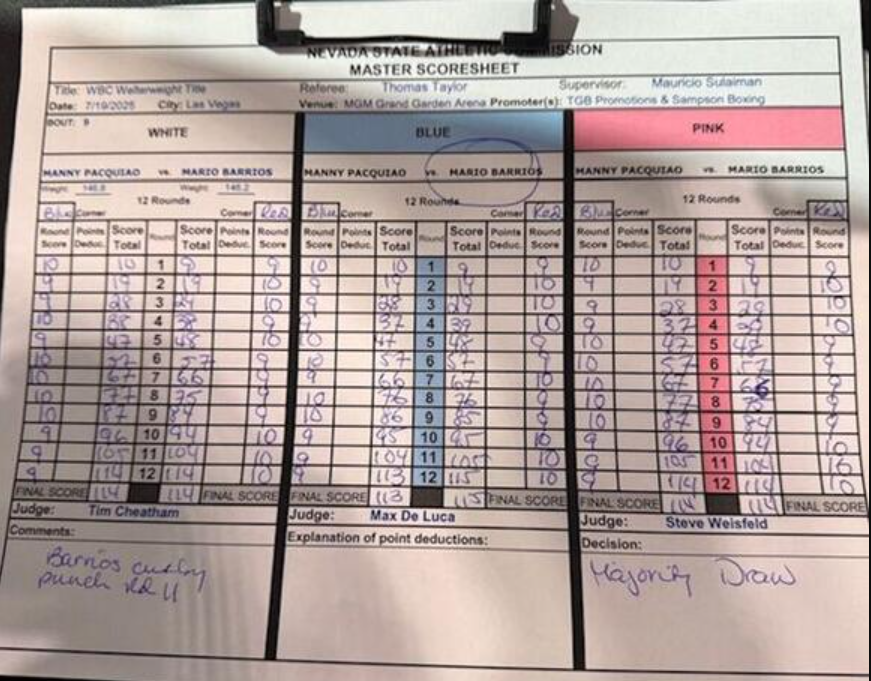 NEVADA STATE ATHLETIC COMMISSION
MASTER SCORESHEET
Title: WBC Welterweight Title Referee: Thomas Taylor Supervisor: Mauricio Sulaiman
Date: 7/19/2025 City: Las Vegas Venue: MGM Grand Garden Arena Promoter(s): TGB Promotions & Sampson Boxing
BOUT: 9
WHITE BLUE PINK
MANNY PACQUIAO vs. MARIO BARRIOS MANNY PACQUIAO vs. MARIO BARRIOS MANNY PACQUIAO vs. MARIO BARRIOS
Weight: 146.8 Weight: 146.2
12 Rounds 12 Rounds 12 Rounds
Blue Corner Corner Red Blue Corner Corner Red Blue Corner Corner Red
Round Score Points Deduc. Score Total Round Score Total Points Deduc. Round Score Round Score Points Deduc. Score Total Round Score Total Points Deduc. Round Score Round Score Points Deduc. Score Total Round Score Total Points Deduc. Round Score
10 10 1 9 9 10 10 1 9 9 10 10 1 9 9
9 19 2 19 10 9 19 2 19 10 9 19 2 19 10
9 28 3 29 10 9 28 3 29 10 9 28 3 29 10
10 38 4 38 9 9 37 4 39 10 9 37 4 39 10
9 47 5 48 10 10 47 5 48 9 10 47 5 48 9
10 57 6 57 9 10 57 6 57 9 10 57 6 57 9
10 67 7 66 9 9 66 7 67 10 10 67 7 66 9
10 77 8 75 9 10 76 8 76 9 10 77 8 75 9
10 87 9 84 9 10 86 9 85 9 10 87 9 84 9
9 96 10 94 10 9 95 10 95 10 9 96 10 94 10
9 105 11 104 10 9 104 11 105 10 9 105 11 104 10
9 114 12 114 10 9 113 12 115 10 9 114 12 114 10
FINAL SCORE 114 114 FINAL SCORE FINAL SCORE 113 115 FINAL SCORE FINAL SCORE 114 114 FINAL SCORE
Judge: Tim Cheatham Judge: Max De Luca Judge: Steve Weisfeld
Comments: Explanation of point deductions: Decision:
Barrios Majority Draw
punch rd 11